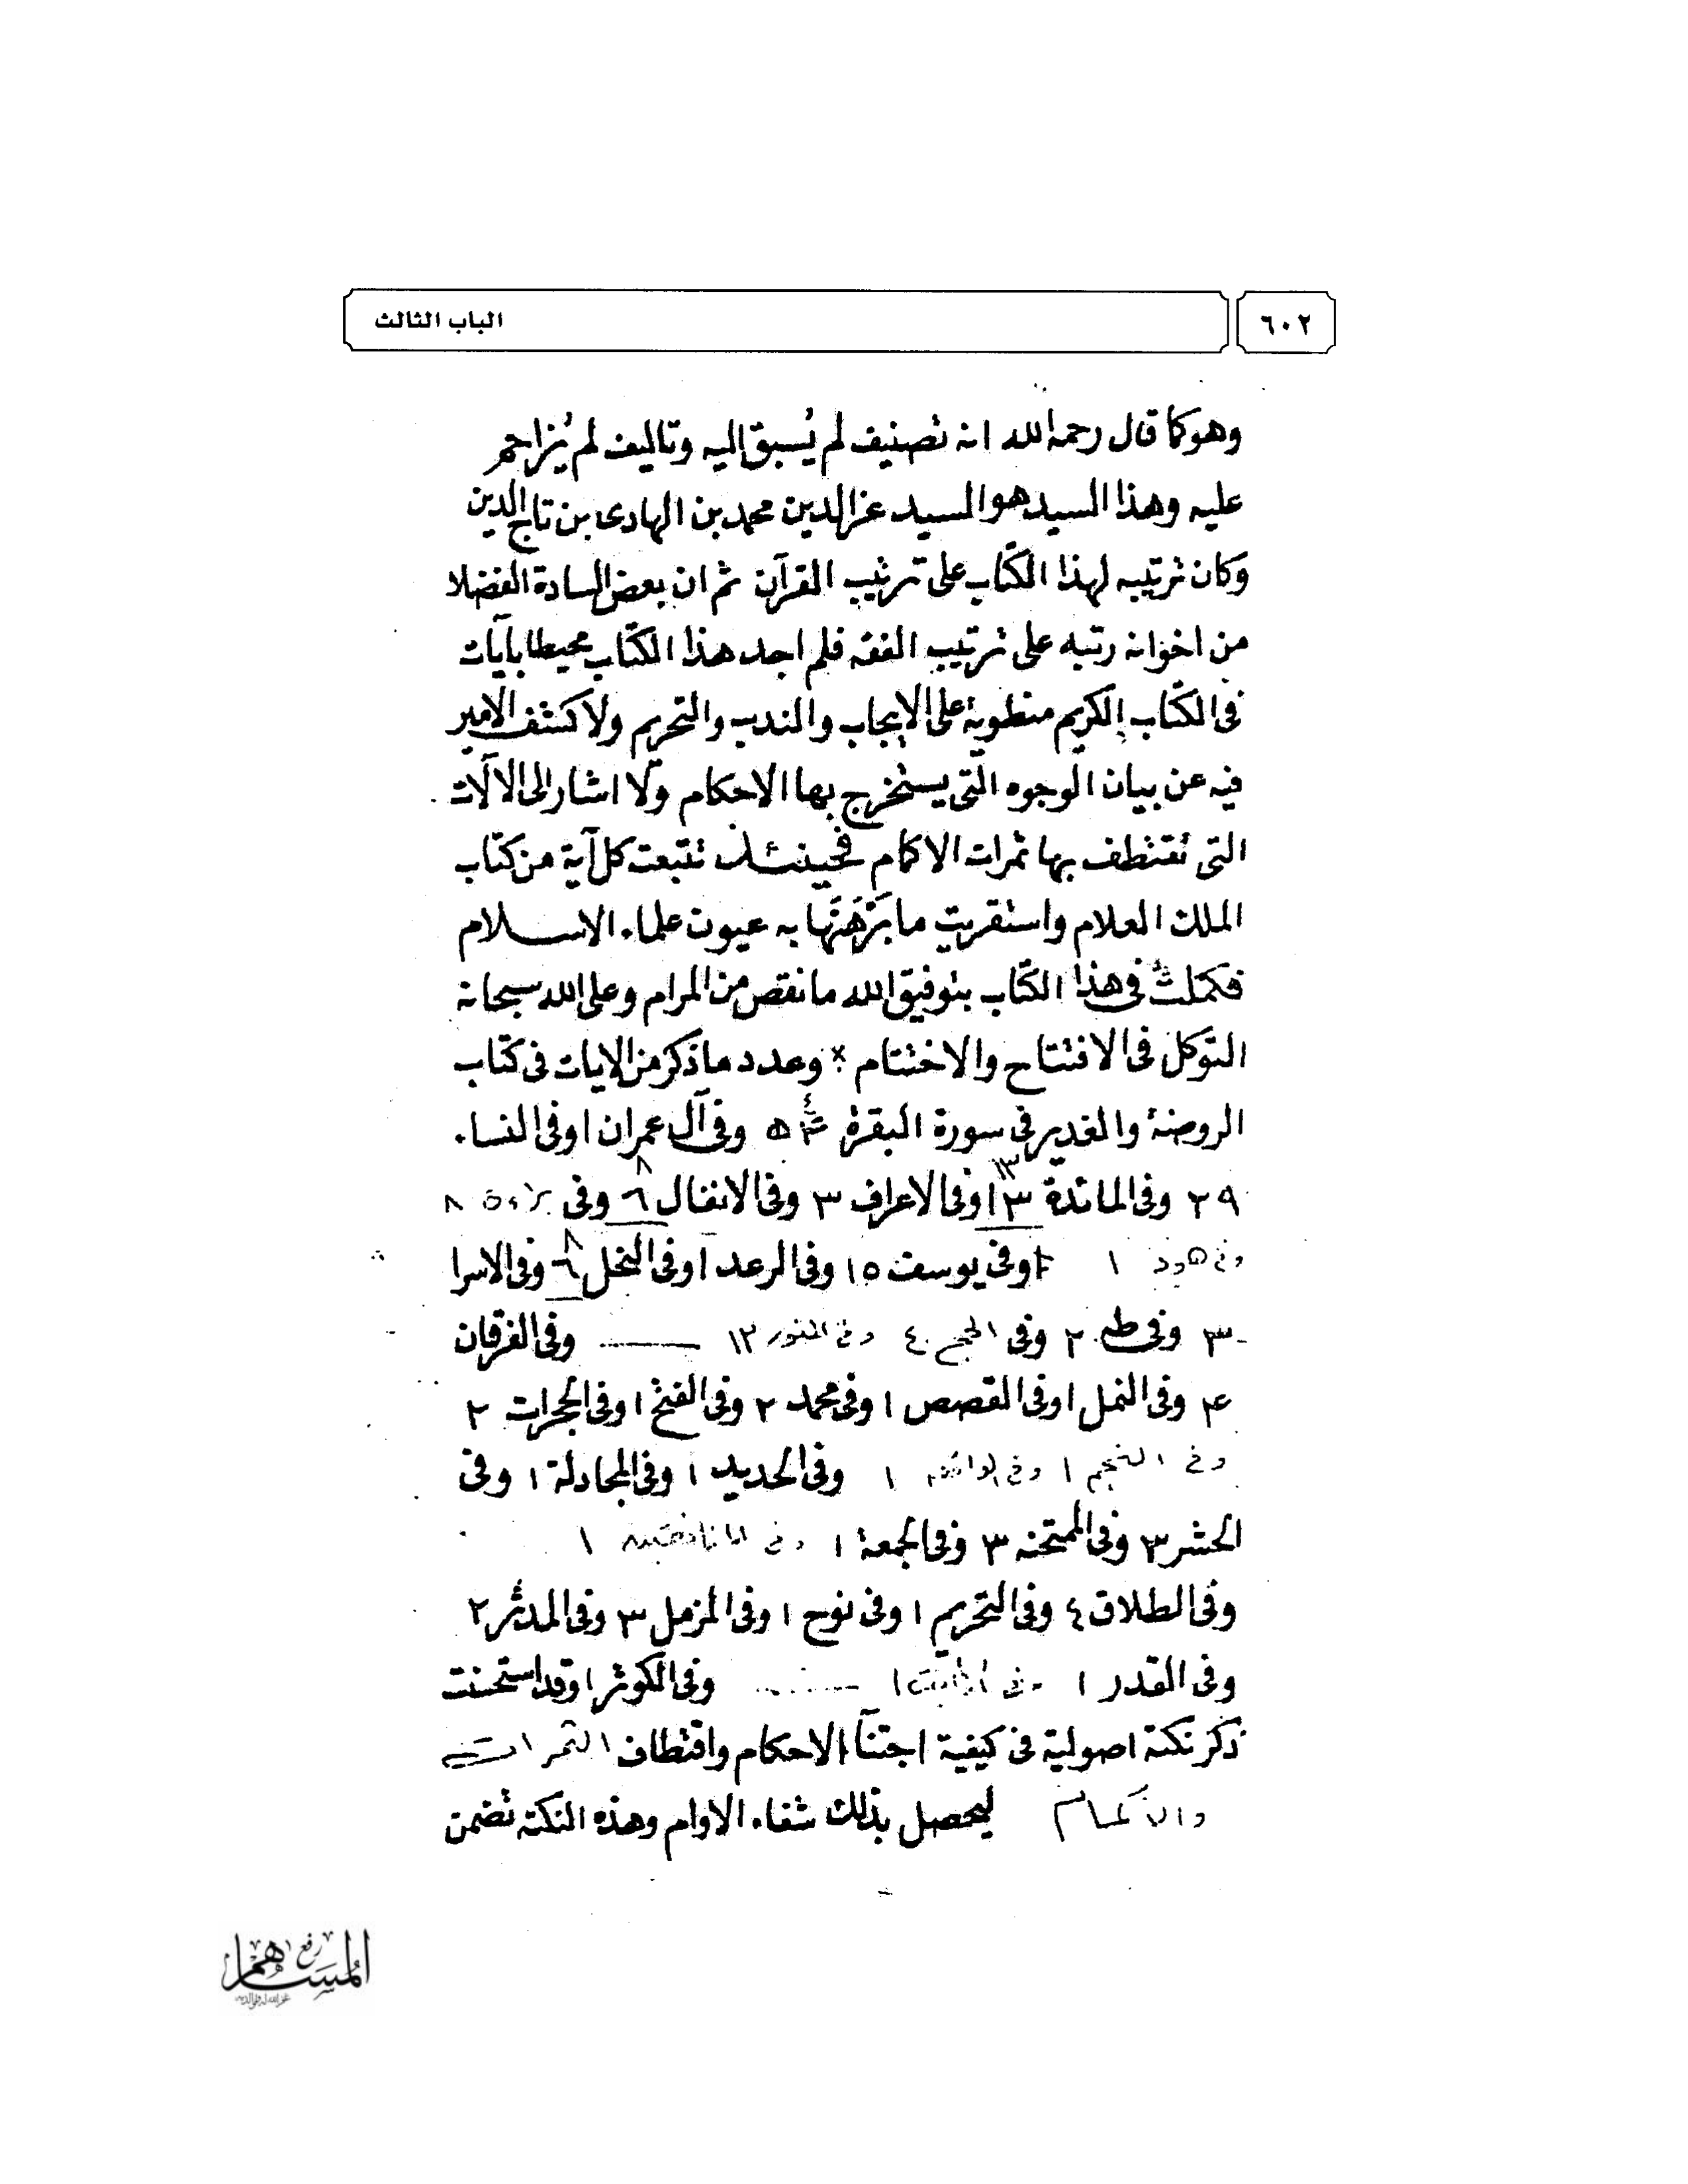 ٦٠٢
الباب الثالث
وهو كما قال رحمه الله انه تصنيف لم يُسبق اليه وتاليف لم يُزاحم
عليه وهذا السيد هو السيد عز الدين محمد بن الهادى بن تاج الدين
وكان ترتيبه لهذا الكتاب على ترتيب القرآن ثم ان بعض السادة الفضلا
من اخوانه رتبه على ترتيب الفقه فلم اجد هذا الكتاب محيطا بآيات
فى الكتاب الكريم منطوية على الايجاب والندب والتحريم ولا كشف الامير
فيه عن بيان الوجوه التى يستخرج بها الاحكام ولا اشار الى الآلات
التى تقتطف بها ثمرات الاكمام فحينئذ تتبعت كل آية من كتاب
الملك العلام واستقريت ما نزهتها به عيون علماء الاسلام
فكملت فى هذا الكتاب بتوفيق الله ما نقص من المرام وعلى الله سبحانه
التوكل فى الافتتاح والاختتام * وعدد ما ذكر من الايات فى كتاب
الروضة والغدير فى سورة البقرة ٥٤ وفى آل عمران ١ وفى النساء
٢٩ وفى المائدة ١٣ وفى الاعراف ٣ وفى الانفال ٦ ٨ وفى براءة ٨
وفى هود ١ وفى يوسف ١٥ وفى الرعد ١ وفى النحل ٦ ٨ وفى الاسرا
٣ وفى طه ٢ وفى الحج ٤ وفى النور ١٣ وفى الفرقان
٤ وفى النمل ١ وفى القصص ١ وفى محمد ٢ وفى الفتح ١ وفى الحجرات ٢
وفى النجم ١ وفى الواقعه ١ وفى الحديد ١ وفى المجادلة ١ وفى
الحشر ٣ وفى الممتحنه ٣ وفى الجمعة ١ وفى المنافقين ١
وفى الطلاق ٤ وفى التحريم ١ وفى نوح ١ وفى المزمل ٣ وفى المدثر ٢
وفى القدر ١ وفى الكوثر ١ وقد استحسنت
ذكر نكتة اصولية فى كيفية اجتنآء الاحكام واقتطاف الثمرات
والاكمام ليحصل بذلك شفاء الاوام وهذه النكتة تضمن
رفع
المساهم